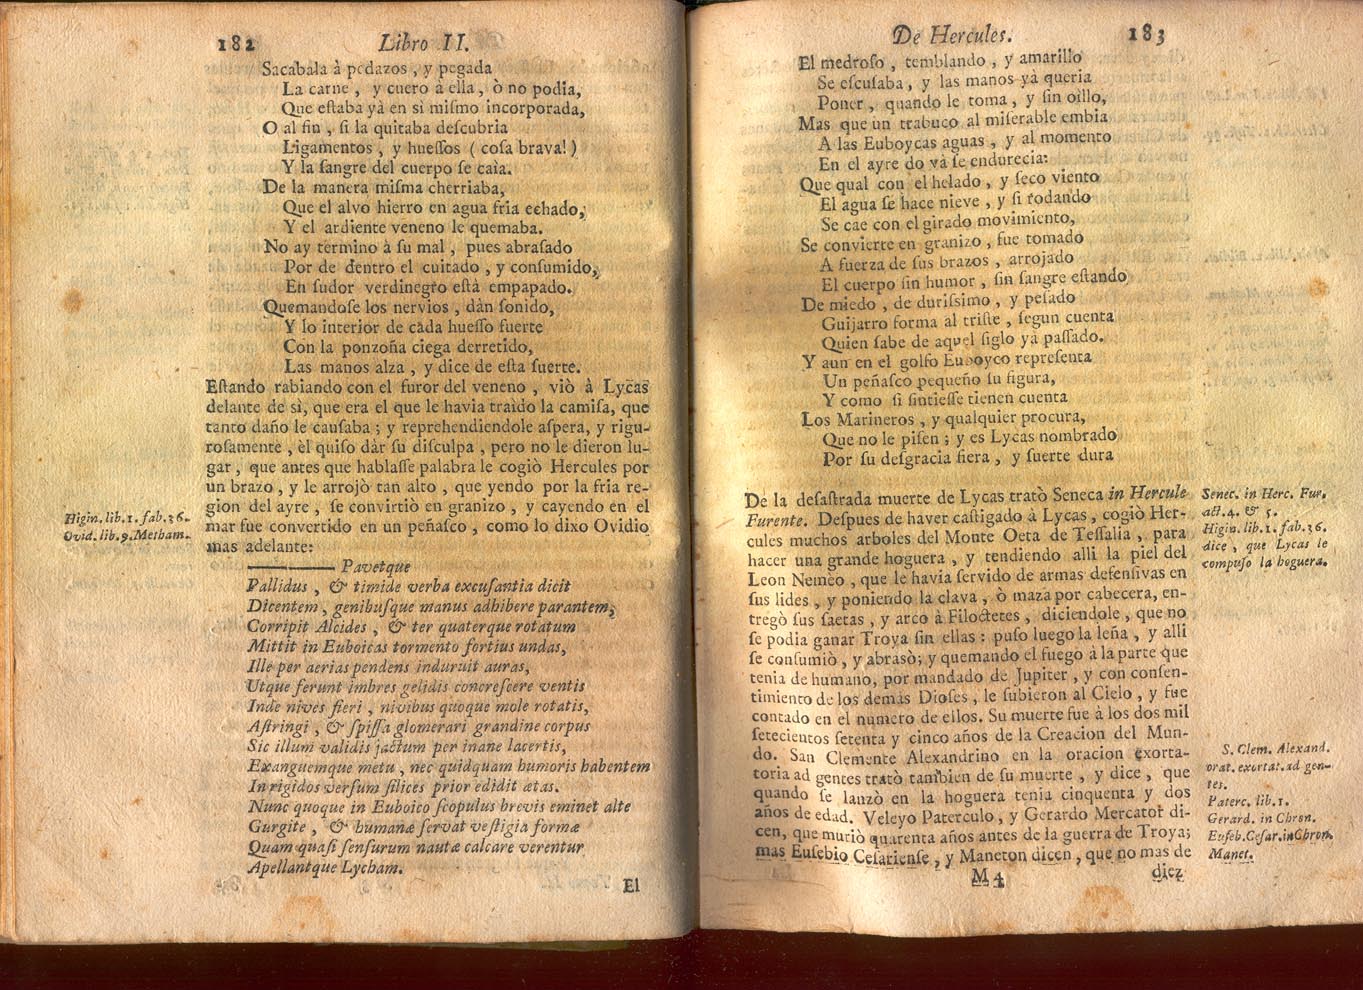 182 Libro II.
Sacabala à pedazos , y pegada
La carne , y cuero à ella , ò no podia,
Que eſtaba yà en si miſmo incorporada,
O al fin , ſi la quitaba deſcubria
Ligamentos , y hueſſos ( coſa brava! )
Y la ſangre del cuerpo ſe caìa.
De la manera miſma cherriaba,
Que el alvo hierro en agua fria echado,
Y el ardiente veneno le quemaba.
No ay termino à ſu mal , pues abraſado
Por de dentro el cuitado , y conſumido,
En ſudor verdinegro eſtà empapado.
Quemandoſe los nervios , dàn ſonido,
Y lo interior de cada hueſſo fuerte
Con la ponzoña ciega derretido,
Las manos alza , y dice de eſta ſuerte.
Eſtando rabiando con el furor del veneno , viò à Lycas
delante de sì, que era el que le havia traìdo la camiſa, que
tanto daño le cauſaba ; y reprehendiendole aſpera, y rigu-
roſamente , èl quiſo dàr ſu diſculpa , pero no le dieron lu-
gar , que antes que hablaſſe palabra le cogiò Hercules por
un brazo , y le arrojò tan alto , que yendo por la fria re-
gion del ayre , ſe convirtiò en granizo , y cayendo en el
mar fue convertido en un peñaſco , como lo dixo Ovidio
mas adelante:
Higin. lib. 1. fab. 36.
Ovid. lib. 9. Metham.
——— Pavetque
Pallidus , & timide verba excuſantia dicit
Dicentem , genibuſque manus adhibere parantem,
Corripit Alcides , & ter quaterque rotatum
Mittit in Euboicas tormento fortius undas,
Ille per aerias pendens induruit auras,
Utque ferunt imbres gelidis concreſcere ventis
Inde nives fieri , nivibus quoque mole rotatis,
Aſtringi , & ſpiſſa glomerari grandine corpus
Sic illum validis jactum per inane lacertis,
Exanguemque metu , nec quidquam humoris habentem
In rigidos verſum ſilices prior edidit ætas.
Nunc quoque in Euboico ſcopulus brevis eminet alte
Gurgite , & humanæ ſervat veſtigia formæ
Quam quaſi ſenſurum nautæ calcare verentur
Apellantque Lycham.
El
De Hercules. 183
El medroſo , temblando , y amarillo
Se eſcuſaba , y las manos yà queria
Poner , quando le toma , y ſin oìllo,
Mas que un trabuco al miſerable embia
A las Euboycas aguas , y al momento
En el ayre do và ſe endurecia:
Que qual con el helado , y ſeco viento
El agua ſe hace nieve , y ſi rodando
Se cae con el girado movimiento,
Se convierte en granizo , fue tomado
A fuerza de ſus brazos , arrojado
El cuerpo ſin humor , ſin ſangre eſtando
De miedo , de duriſsimo , y peſado
Guijarro forma al triſte , ſegun cuenta
Quien ſabe de aquel ſiglo yà paſſado.
Y aun en el golfo Euboyco repreſenta
Un peñaſco pequeño ſu figura,
Y como ſi ſintieſſe tienen cuenta
Los Marineros , y qualquier procura,
Que no le piſen ; y es Lycas nombrado
Por ſu deſgracia fiera , y ſuerte dura
De la deſaſtrada muerte de Lycas tratò Seneca in Hercule
Furente. Deſpues de haver caſtigado à Lycas , cogiò Her-
cules muchos arboles del Monte Oeta de Teſſalia , para
hacer una grande hoguera , y tendiendo alli la piel del
Leon Nemèo , que le havia ſervido de armas defenſivas en
ſus lides , y poniendo la clava , ò maza por cabecera, en-
tregò ſus ſaetas , y arco à Filoctetes , diciendole , que no
ſe podia ganar Troya ſin ellas : puſo luego la leña , y alli
ſe conſumiò , y abrasò; y quemando el fuego à la parte que
tenia de humano, por mandado de Jupiter , y con conſen-
timiento de los demàs Dioſes , le ſubieron al Cielo , y fue
contado en el numero de ellos. Su muerte fue à los dos mil
ſetecientos ſetenta y cinco años de la Creacion del Mun-
do. San Clemente Alexandrino en la oracion exorta-
toria ad gentes tratò tambien de ſu muerte , y dice , que
quando ſe lanzò en la hoguera tenia cinquenta y dos
años de edad. Veleyo Paterculo , y Gerardo Mercator di-
cen, que muriò quarenta años antes de la guerra de Troya;
mas Euſebio Ceſarienſe , y Maneton dicen , que no mas de
Senec. in Herc. Fur.
act. 4. & 5.
Higin. lib. 1. fab. 36.
dice , que Lycas le
compuſo la hoguera.
S. Clem. Alexand.
orat. exortat. ad gen-
tes.
Paterc. lib. 1.
Gerard. in Chron.
Euſeb. Ceſar. in Chron.
Manet.
M 4 diez